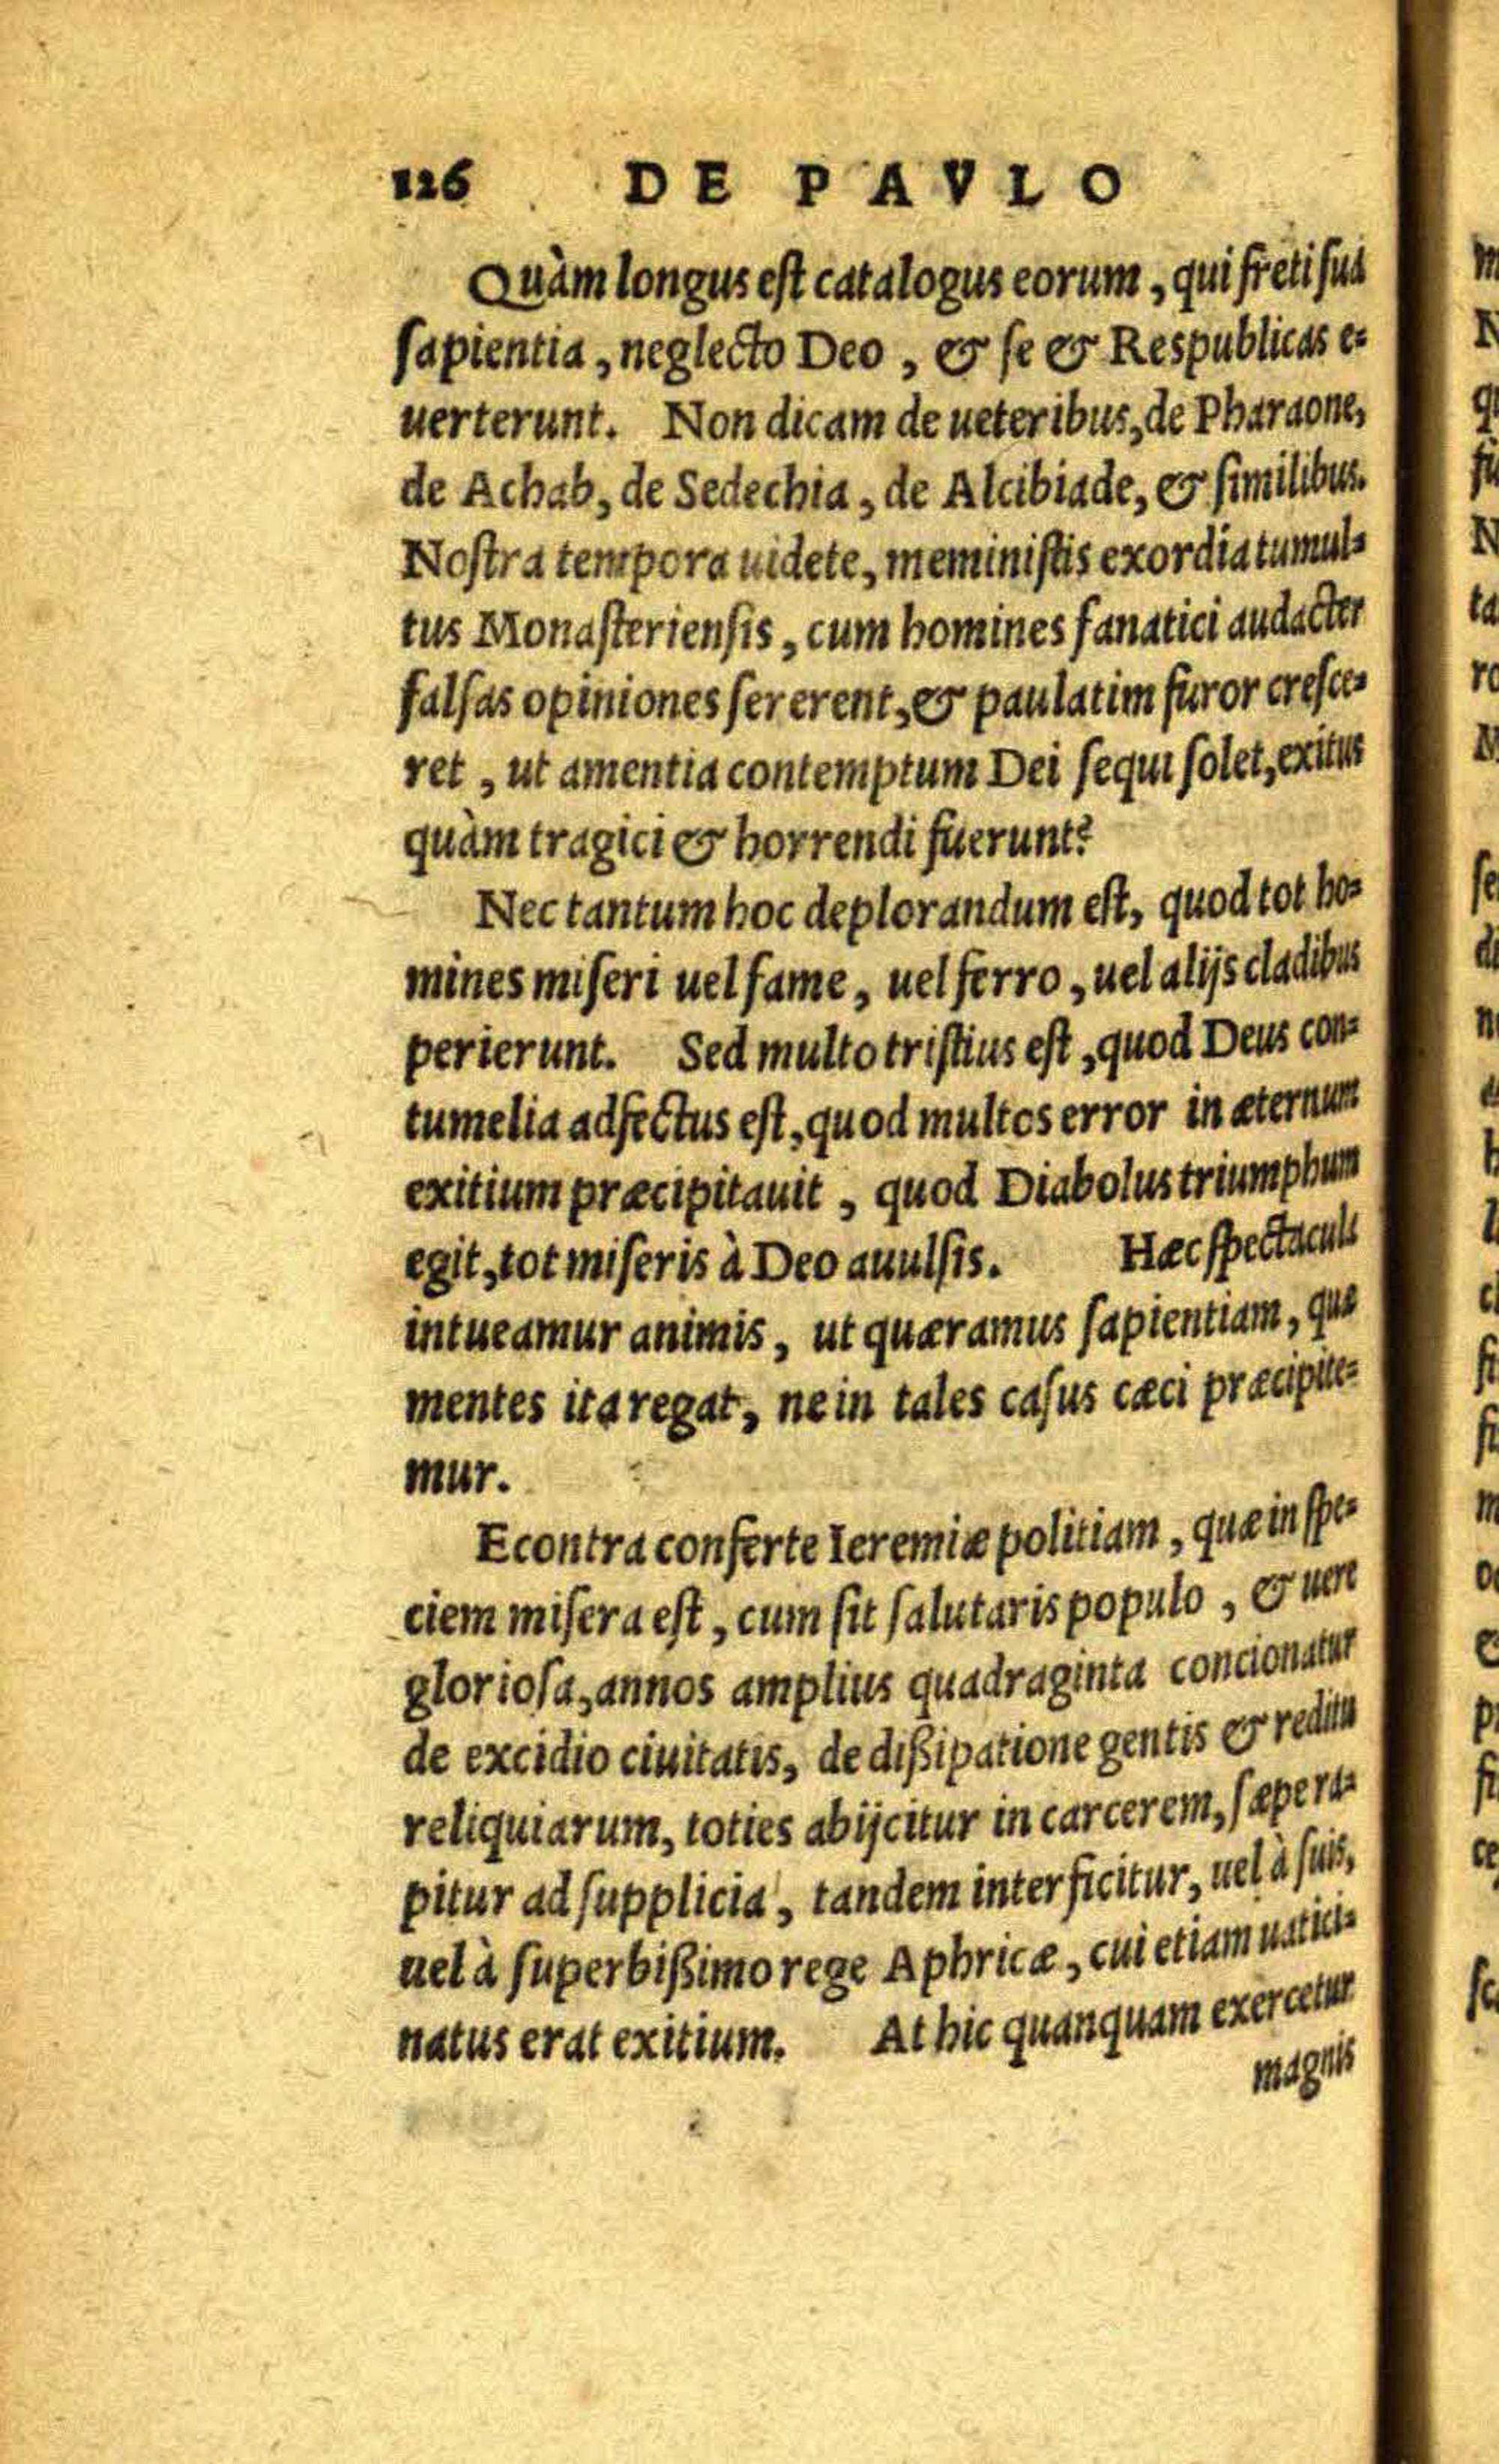 126 DE PAVLO
Quàm longus est catalogus eorum, qui freti sua
sapientia, neglecto Deo, & se & Respublicas e=
uerterunt. Non dicam de ueteribus, de Pharaone,
de Achab, de Sedechia, de Alcibiade, & similibus.
Nostra tempora uidete, meministis exordia tumul=
tus Monasteriensis, cum homines fanatici audacter
falsas opiniones sererent, & paulatim furor cresce=
ret, ut amentia contemptum Dei sequi solet, exitus
quàm tragici & horrendi fuerunt?
Nec tantum hoc deplorandum est, quod tot ho=
mines miseri uel fame, uel ferro, uel alijs cladibus
perierunt. Sed multo tristius est, quod Deus con=
tumelia adfectus est, quod multos error in æternum
exitium præcipitauit, quod Diabolus triumphum
egit, tot miseris à Deo auulsis. Hæc spectacula
intueamur animis, ut quæramus sapientiam, quæ
mentes ita regat, ne in tales casus cæci præcipite=
mur.
Econtra conferte Ieremiæ politiam, quæ in spe=
ciem misera est, cum sit salutaris populo, & uere
gloriosa, annos amplius quadraginta concionatur
de excidio ciuitatis, de dißipatione gentis & reditu
reliquiarum, toties abijcitur in carcerem, sæpe ra=
pitur ad supplicia, tandem interficitur, uel à suis,
uel à superbißimo rege Aphricæ, cui etiam uatici=
natus erat exitium. At hic quanquam exercetur
magnis